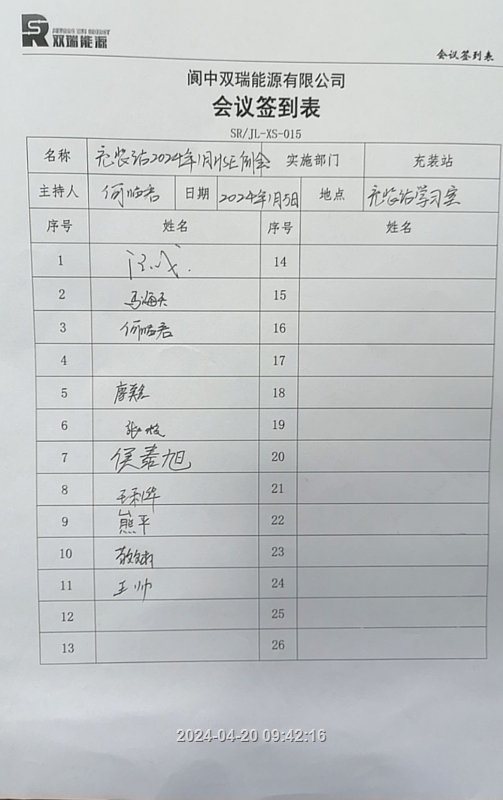 双瑞能源
会议签到表
阆中双瑞能源有限公司
会议签到表
SR/JL-XS-015
名称 充装站2024年1月 例会 实施部门 充装站
主持人 何皓君 日期 2024年1月5日 地点 充装站学习室
序号 姓名 序号 姓名
1 14
2 马海天 15
3 何皓君 16
4 17
5 18
6 张 19
7 侯嘉旭 20
8 王利华 21
9 熊平 22
10 23
11 王帅 24
12 25
13 26
2024-04-20 09:42:16